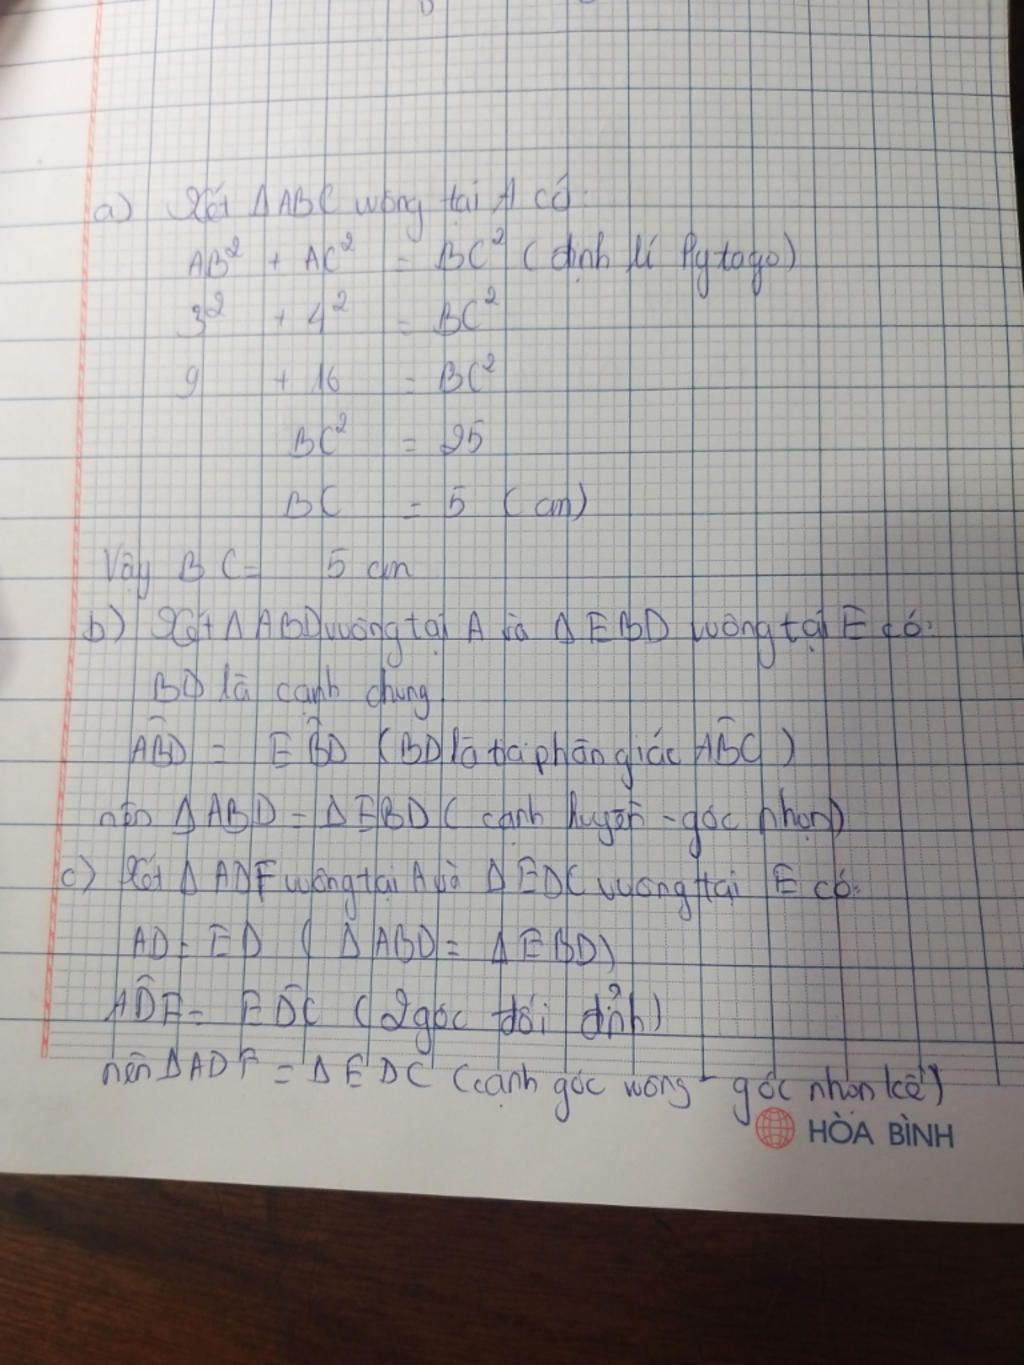 a) Xét ΔABC vuông tại A có:
AB² + AC² = BC² (định lí Pytago)
3² + 4² = BC²
9 + 16 = BC²
BC² = 25
BC = 5 (cm)
Vậy BC = 5 cm
b) Xét ΔABD vuông tại A và ΔEBD vuông tại E có:
BD là cạnh chung
AB̂D = EB̂D (BD là tia phân giác AB̂C)
nên ΔABD = ΔEBD (cạnh huyền - góc nhọn)
c) Xét ΔADF vuông tại A và ΔEDC vuông tại E có:
AD = ED (ΔABD = ΔEBD)
AD̂F = ED̂C (2 góc đối đỉnh)
nên ΔADF = ΔEDC (cạnh góc vuông - góc nhọn kề)
HÒA BÌNH